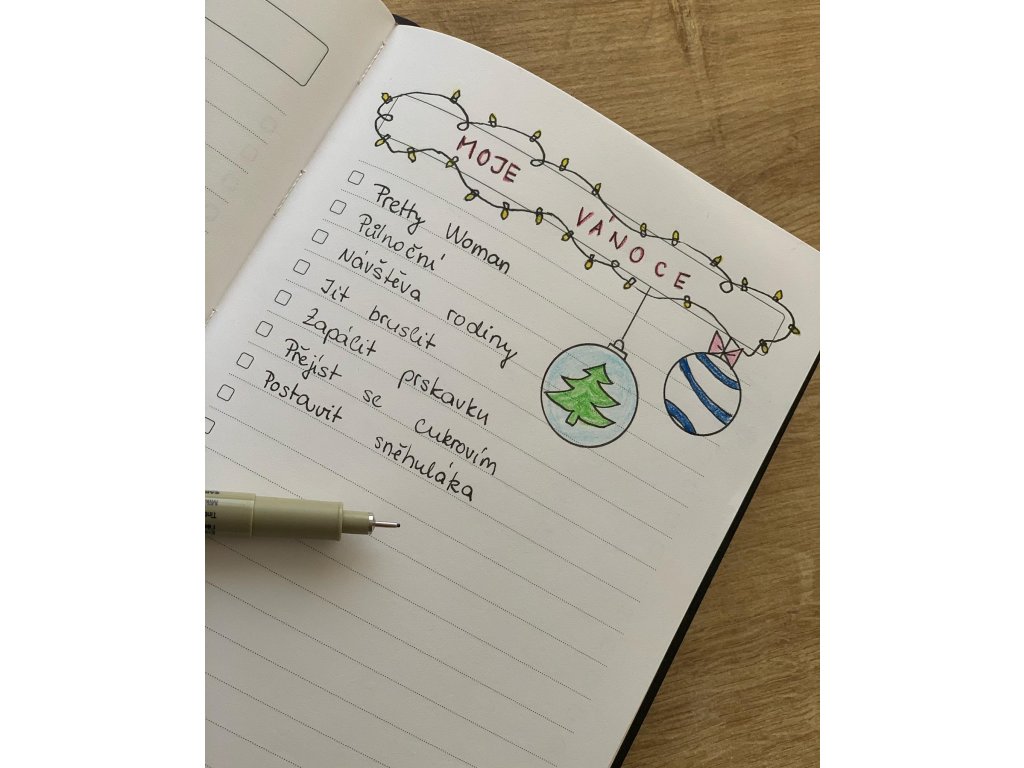 MOJE VÁNOCE
Pretty Woman
Půlnoční
Návštěva rodiny
Jít bruslit
Zapálit prskavku
Přejíst se cukrovím
Postavit sněhuláka